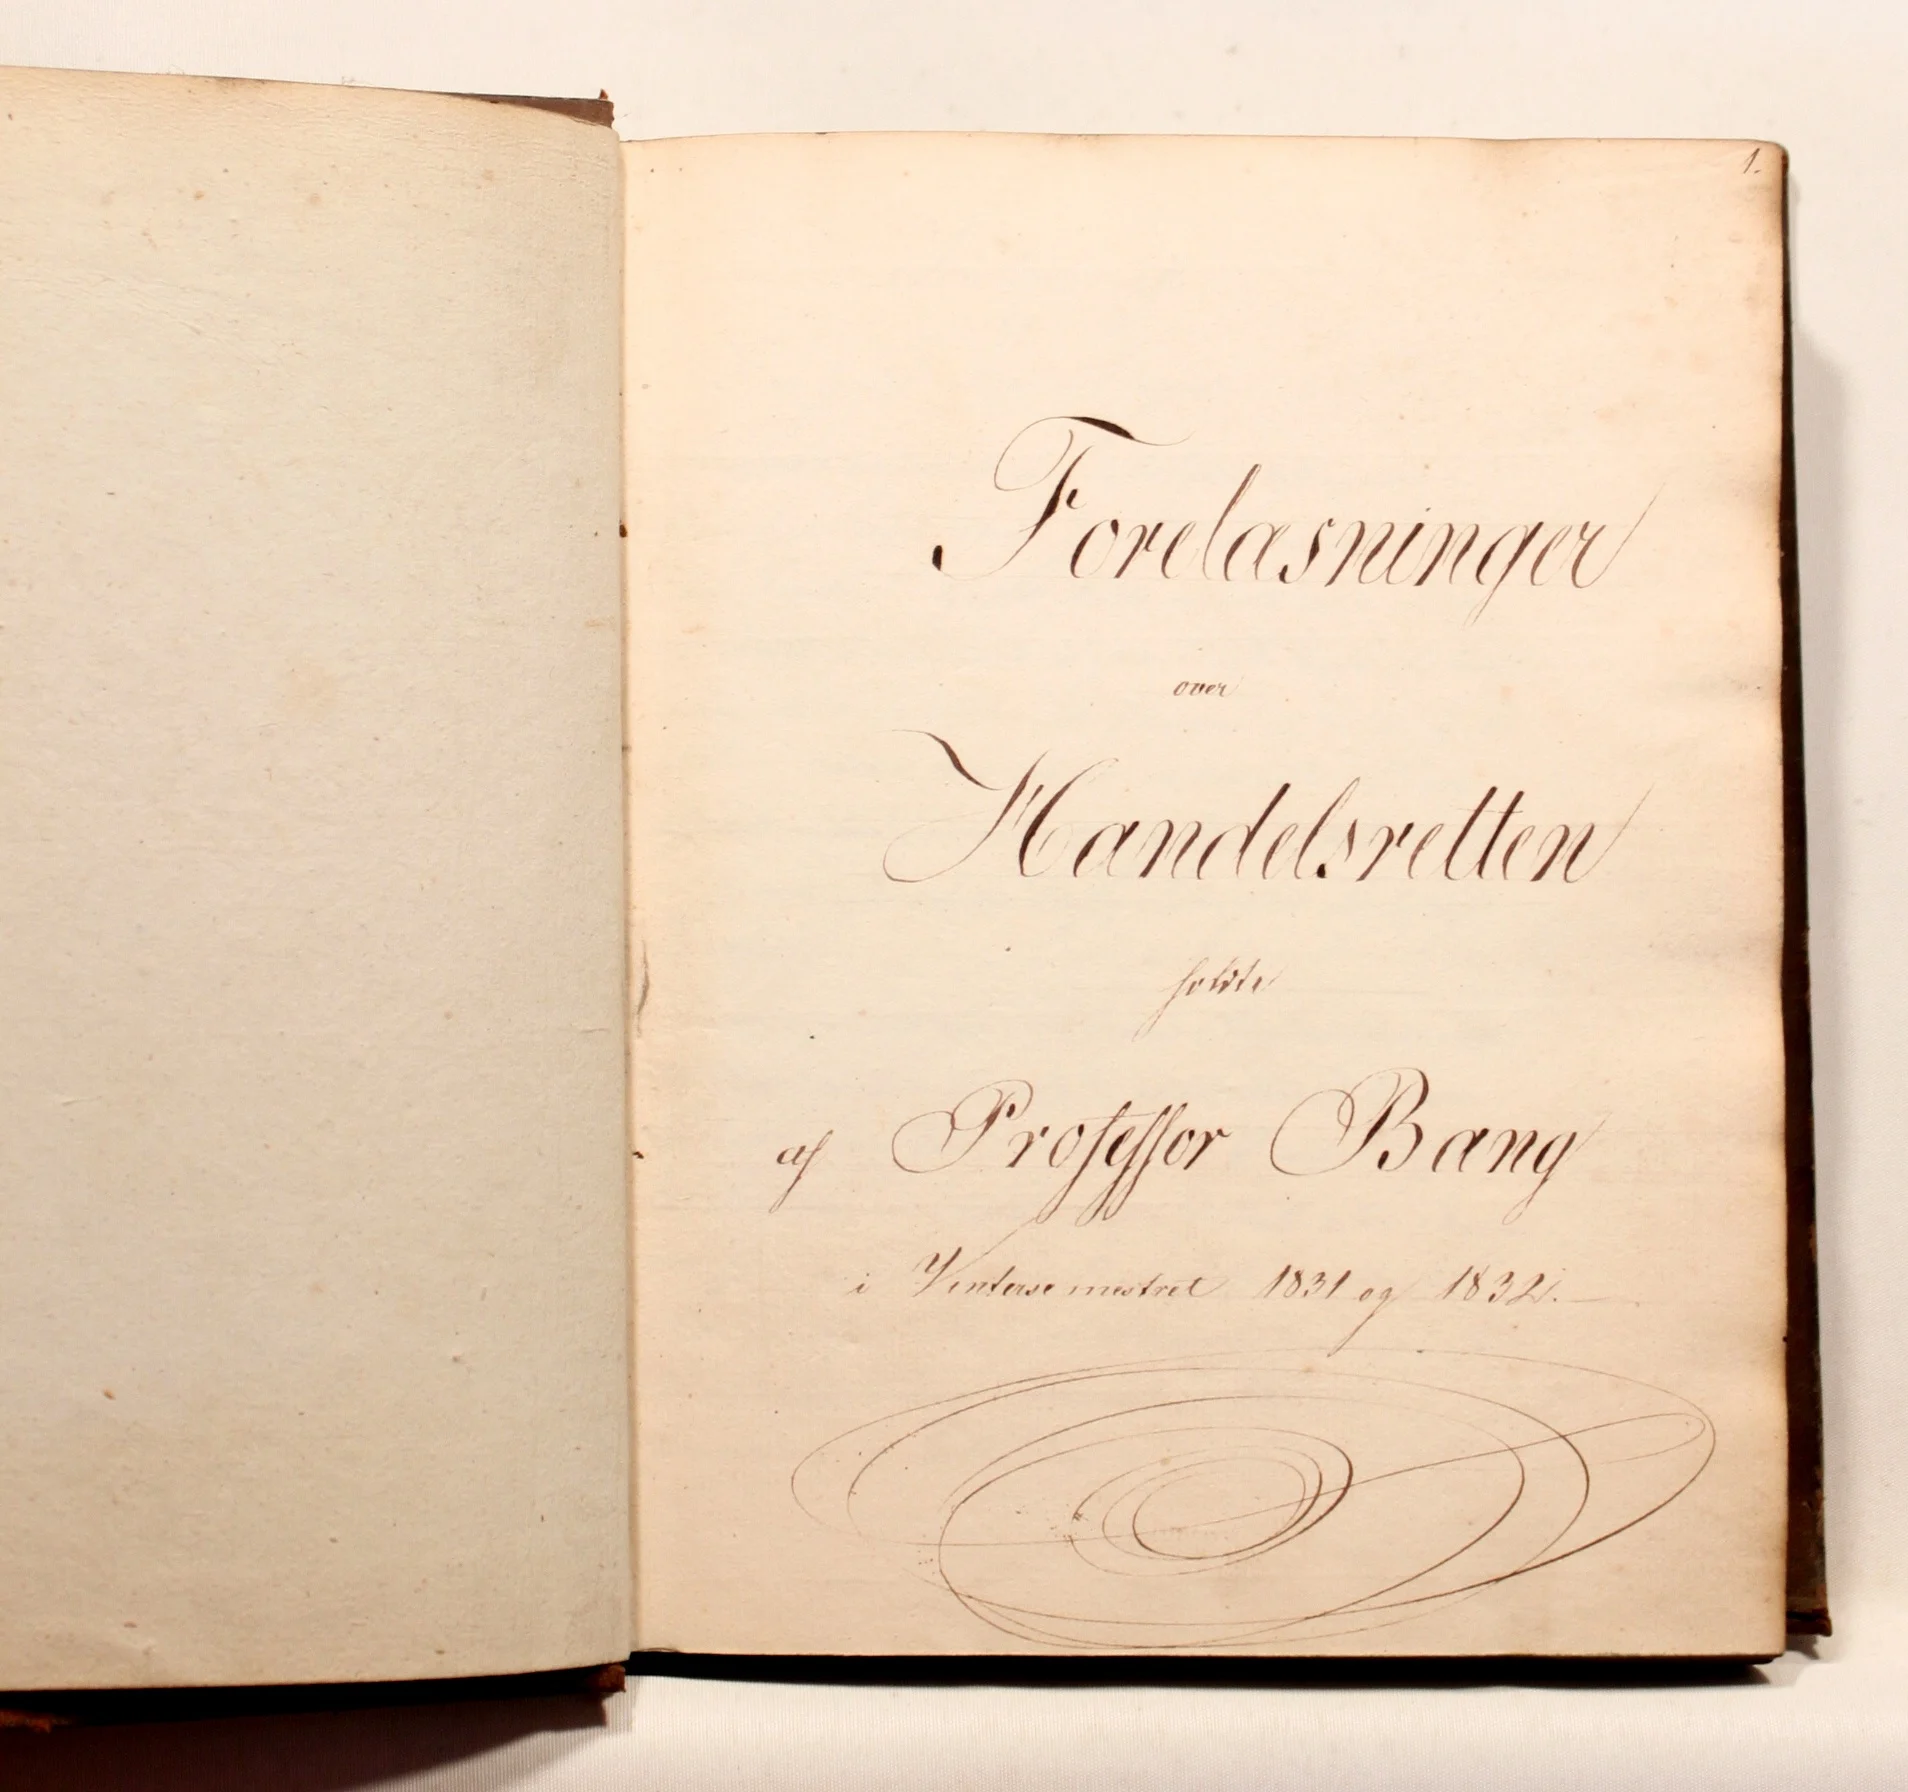 1.
Forelæsninger
over
Handelsretten
holdte
af Professor Bang
i Vintersemestret 1831 og 1832.